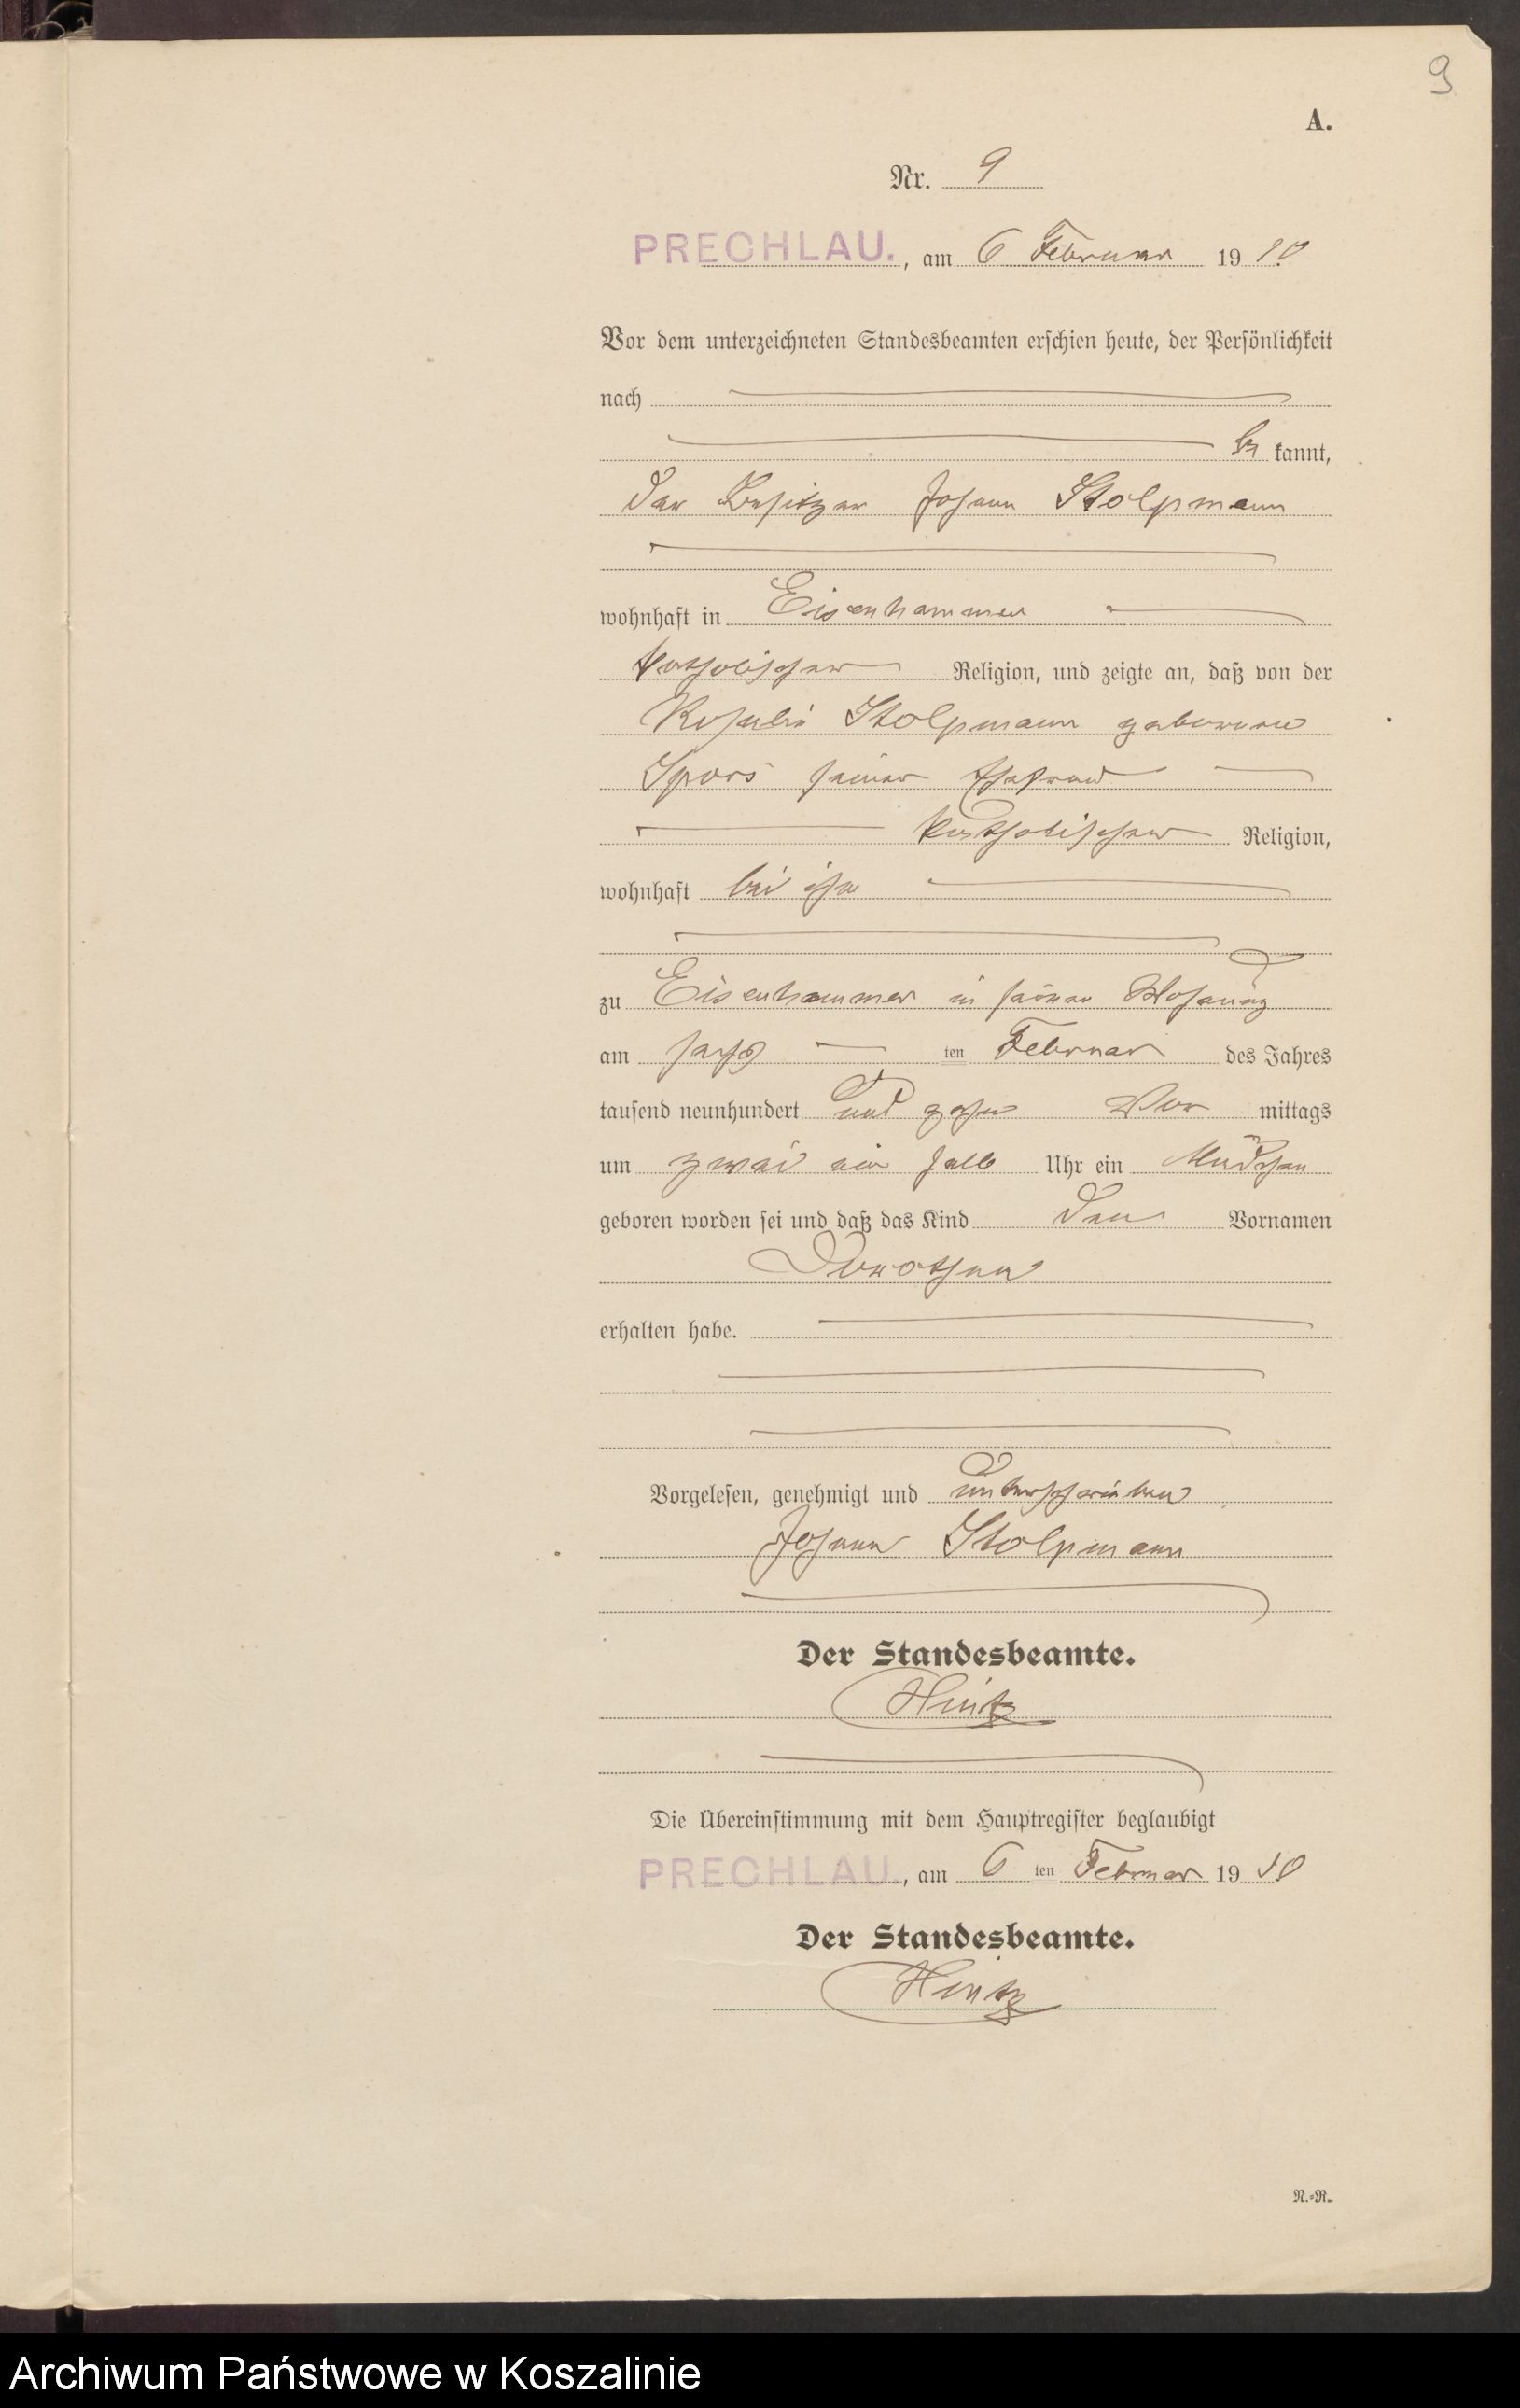 9
A.
Nr. 9
PRECHLAU., am 6 Februar 1910
Vor dem unterzeichneten Standesbeamten erschien heute, der Persönlichkeit
nach
be kannt,
der Besitzer Johann Stolpmann
wohnhaft in Eisenhammer
katholischer Religion, und zeigte an, daß von der
Rosalie Stolpmann geborene
Spors seiner Ehefrau
katholischer Religion,
wohnhaft bei ihm
zu Eisenhammer in seiner Wohnung
am sechs ten Februar des Jahres
tausend neunhundert und zehn Vor mittags
um zwei ein halb Uhr ein Mädchen
geboren worden sei und daß das Kind den Vornamen
Dorothea
erhalten habe.
Vorgelesen, genehmigt und unterschrieben
Johann Stolpmann
Der Standesbeamte.
Hintz
Die Übereinstimmung mit dem Hauptregister beglaubigt
PRECHLAU., am 6 ten Februar 1910
Der Standesbeamte.
Hintz
N.=R.
Archiwum Państwowe w Koszalinie